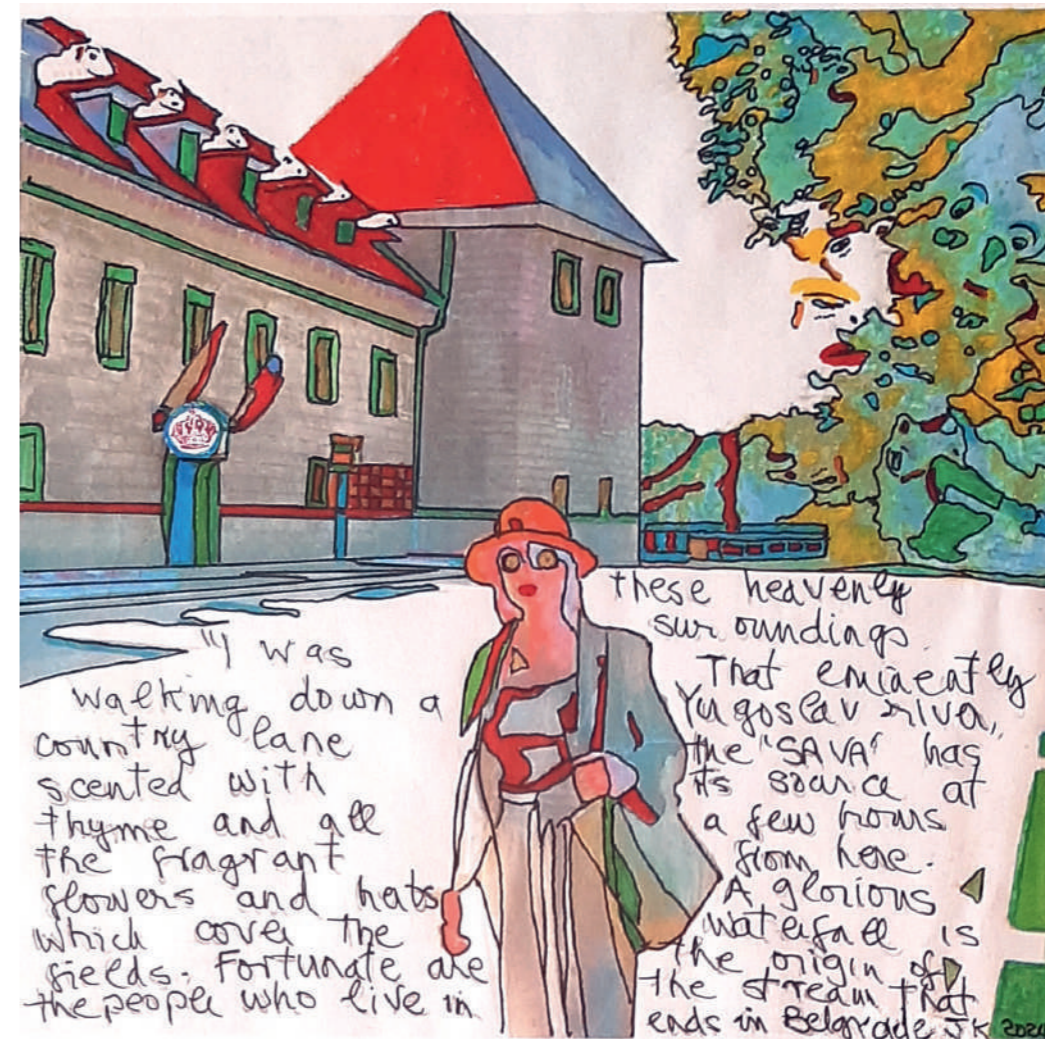 "I was
walking down a
country lane
scented with
thyme and all
the fragrant
flowers and hebs
which cover the
fields. Fortunate are
the people who live in
these heavenly
surroundings.
That eminently
Yugoslav river,
the "SAVA" has
its source at
a few hours
from here.
A glorious
waterfall is
the origin of
the stream that
ends in Belgrade JK 2024